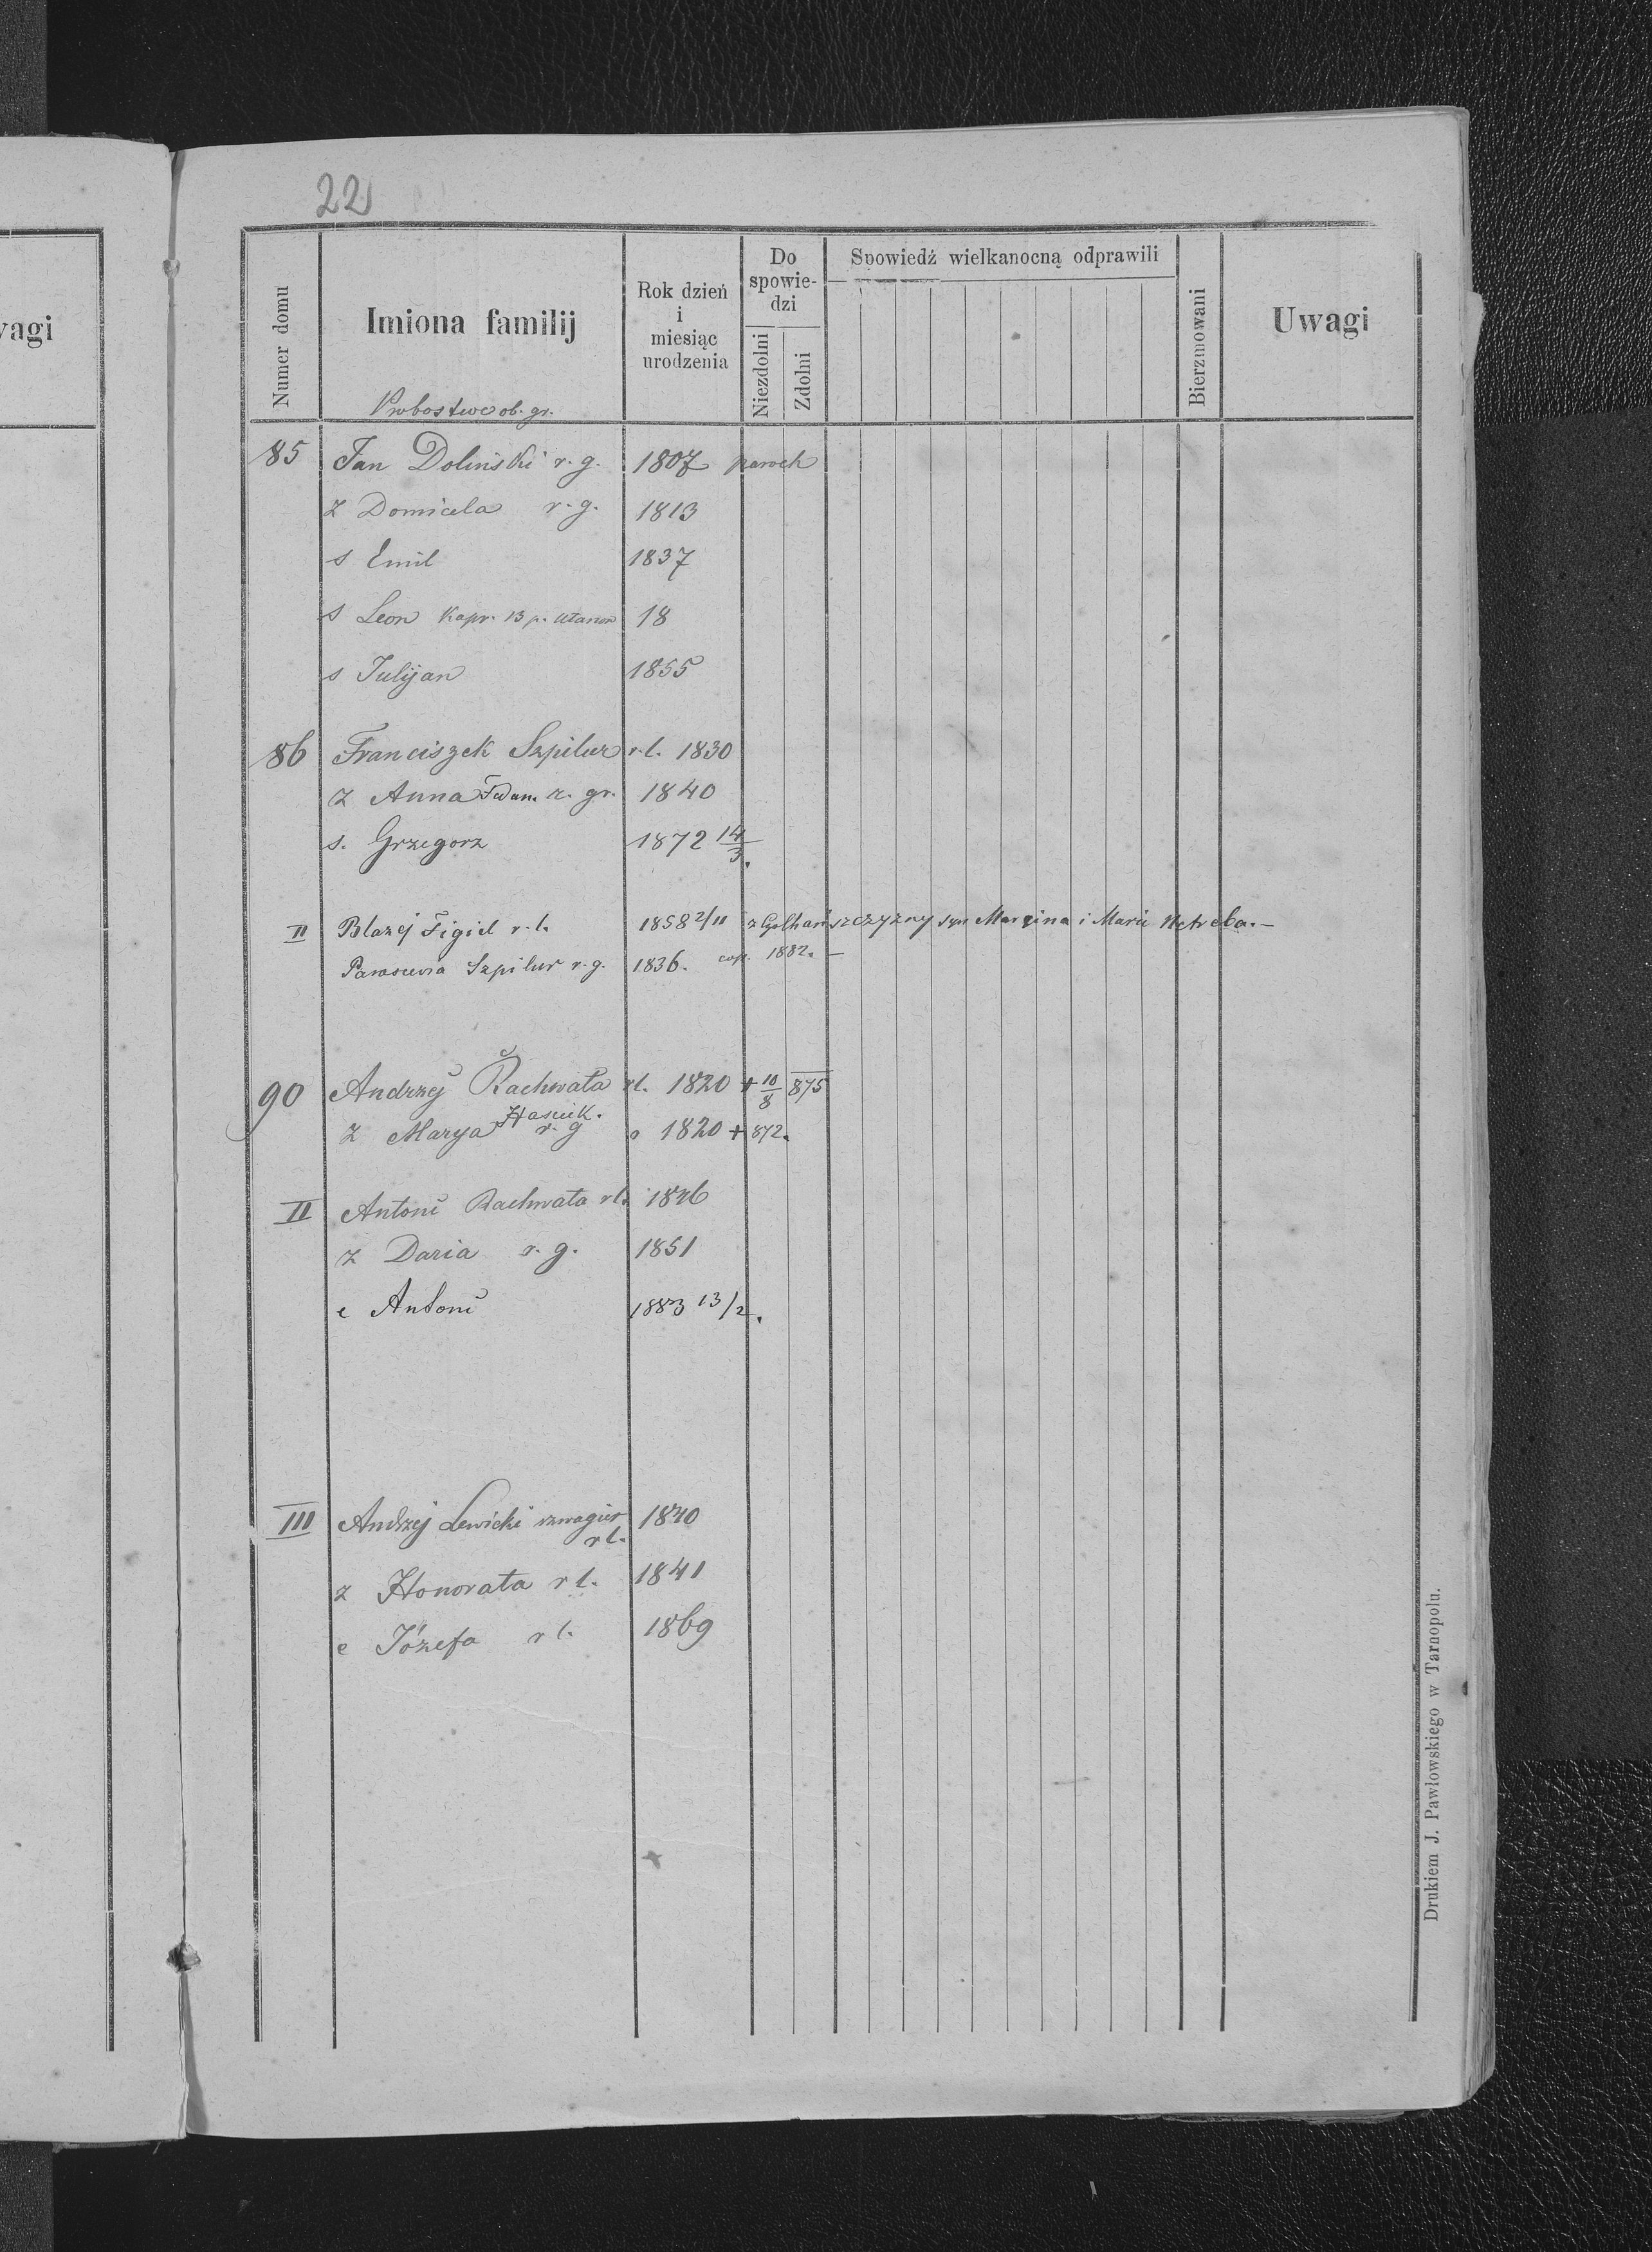 22
vagi
Numer domu
Imiona familij
Rok dzień
i
miesiąc
urodzenia
Do
spowie-
dzi
Niezdolni
Zdolni
Spowiedź wielkanocną odprawili
Bierzmowani
Uwagi
Probostwo ob. gr.
85 Jan Doliński r. g. 1807 paroch
z Domicela r. g. 1813
s Emil 1837
s Leon Kapr. 13 p. ułanów 18
s Julijan 1855
86 Franciszek Szpilur r. l. 1830
z Anna r. gr. 1840
s. Grzegorz 1872 14/3.
II Blazej Figiel r. l. 1858 2/11 syn Marcina i Marii Netreba.—
Parascevia Szpilur r. g. 1836. cop. 1882. —
90 Andrzej Rachwała rl. 1820 + 10/8 875
Hasiuk.
z Marya r. g 1820 + 872.
II Antoni Rachwała rl. 1846
z Daria r. g. 1851
c Antoni 1883 13/2.
III Andrzej Lewicki szwagier 1840
rl.
z Honorata r l. 1841
c Józefa r l. 1869
Drukiem J. Pawłowskiego w Tarnopolu.